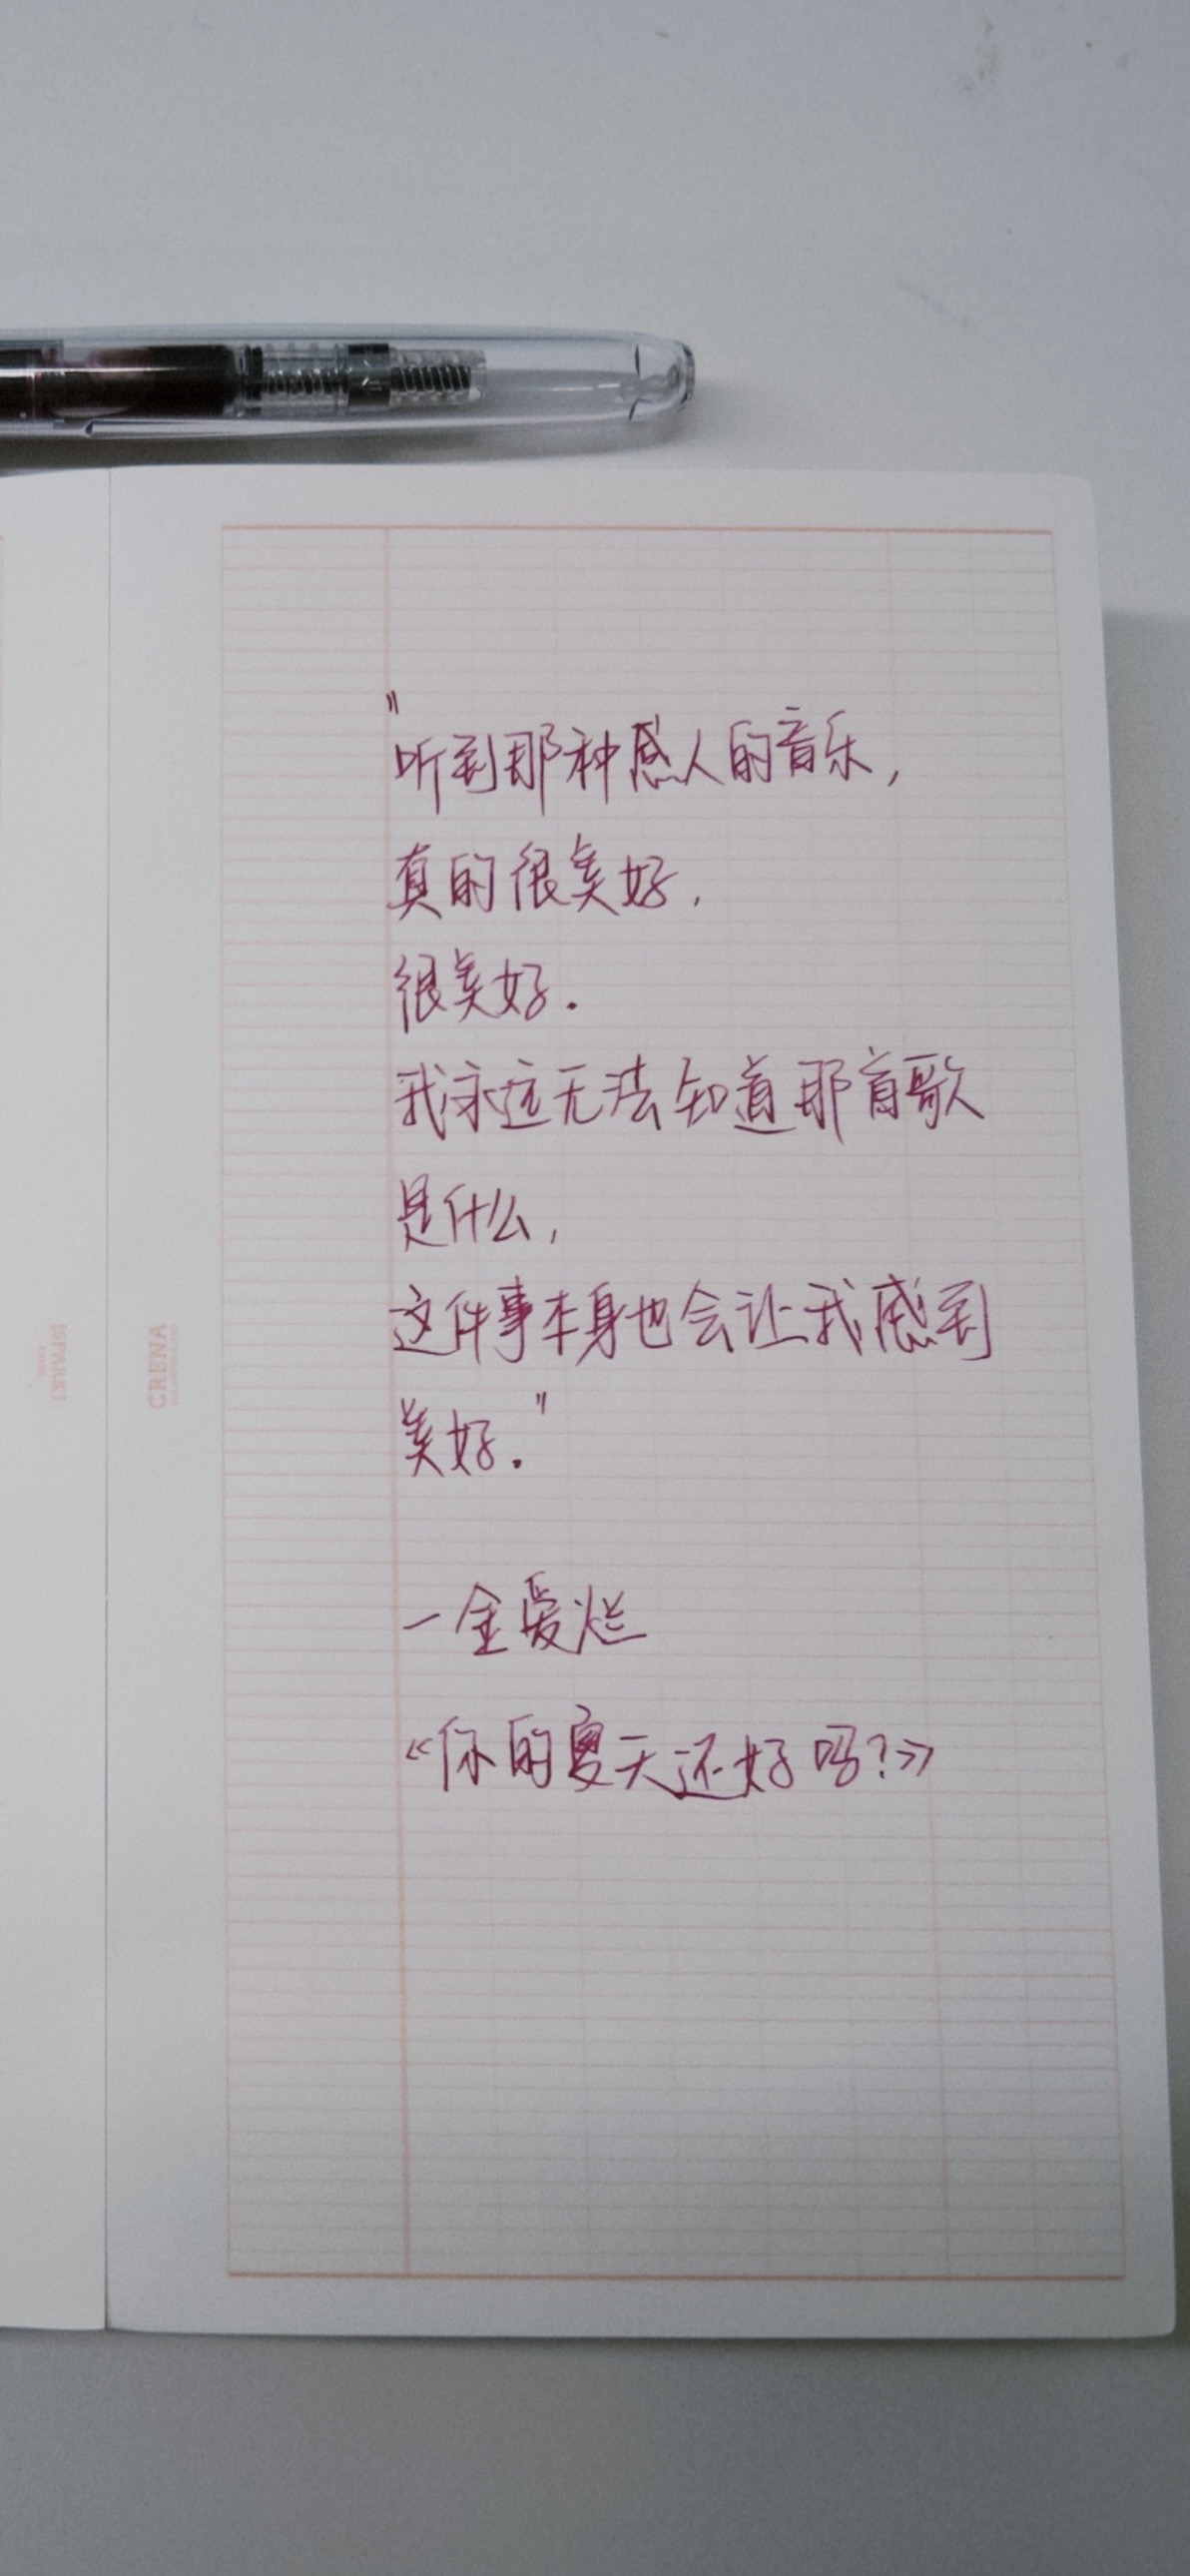 "听到那种感人的音乐,
真的很美好,
很美好.
我永远无法知道那首歌
是什么,
这件事本身也会让我感到
美好."
—金爱烂
《你的夏天还好吗?》
CRENA